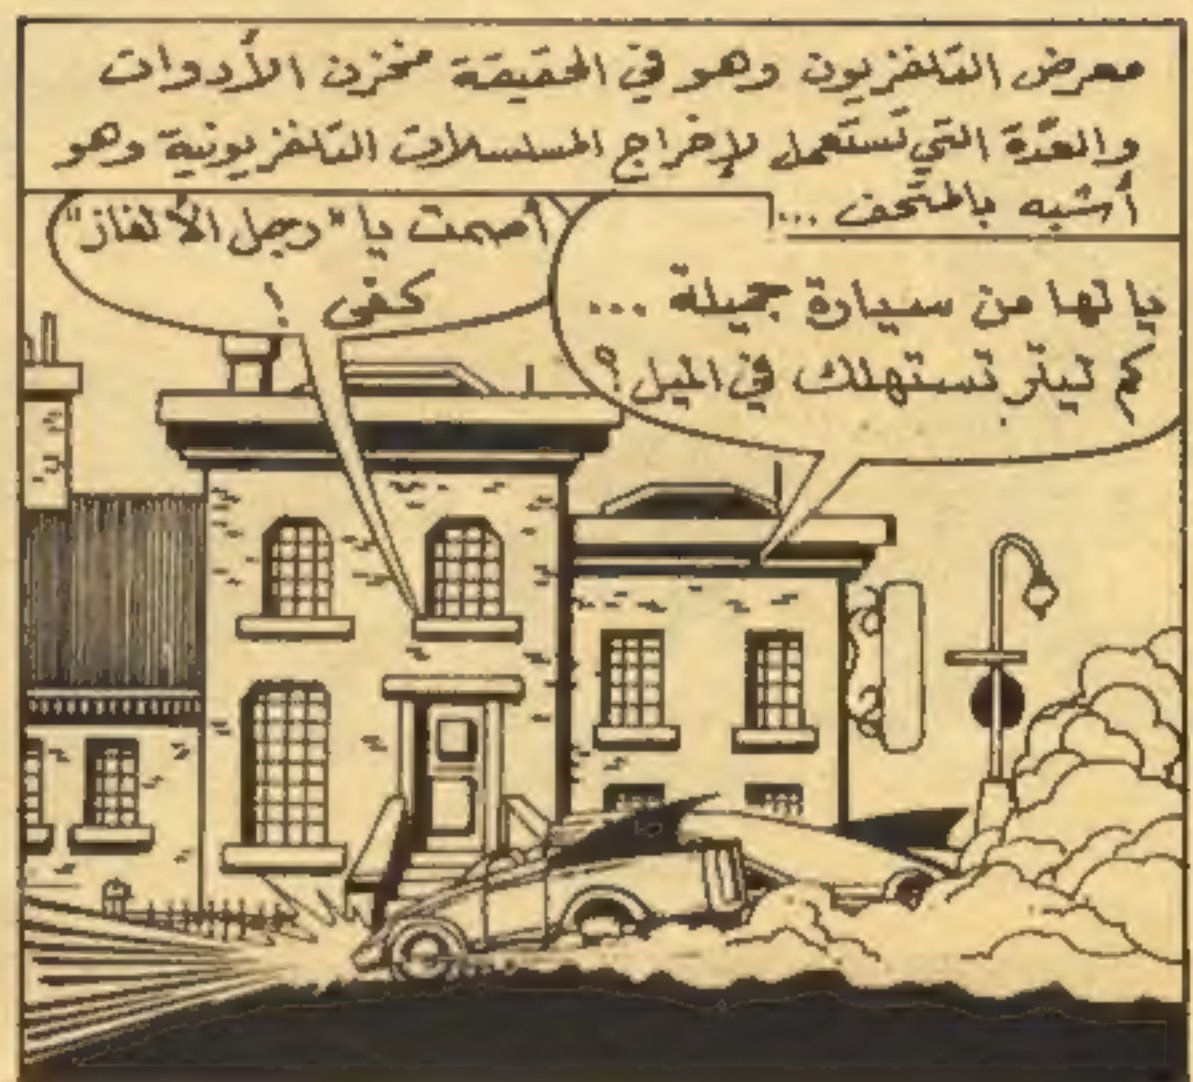 معرض التلفزيون وهو في الحقيقة مخزن الأدوات
والعدّة التي تستعمل لإخراج المسلسلات التلفزيونية وهو
أشبه بالمتحف ...
يا لها من سيارة جميلة ...
كم ليتر تستهلك في الميل؟
أصمت يا "رجل الألغاز"
كفى !